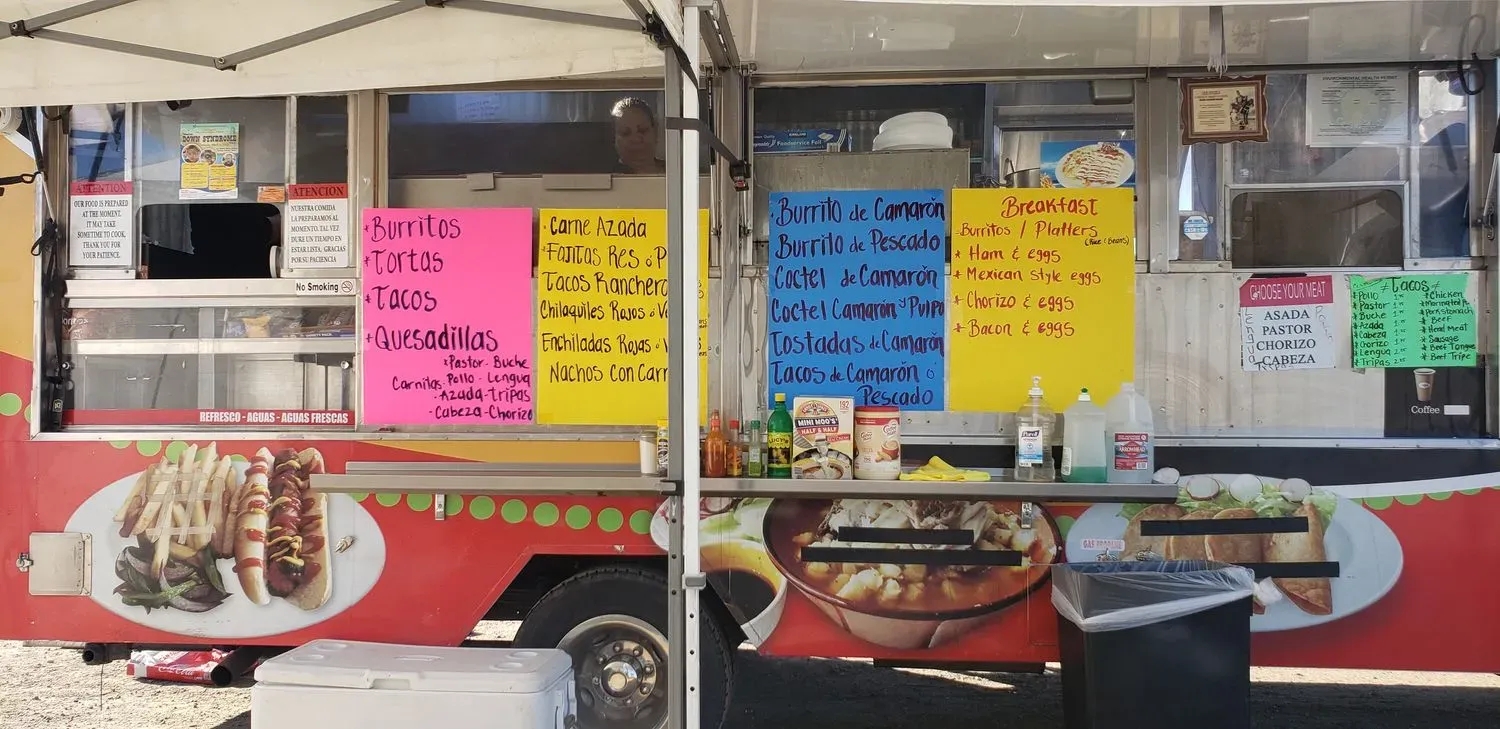 DOWN SYNDROME
ATTENTION
OUR FOOD IS PREPARED
AT THE MOMENT.
IT MAY TAKE
SOMETIME TO COOK.
THANK YOU FOR
YOUR PATIENCE.
ATENCION
NUESTRA COMIDA
LA PREPARAMOS AL
MOMENTO. TAL VEZ
DURE UN TIEMPO EN
ESTAR LISTA. GRACIAS
POR SU PACIENCIA
No Smoking
REFRESCO - AGUAS - AGUAS FRESCAS
*Burritos
*Tortas
*Tacos
*Quesadillas
*Pastor - Buche
Carnitas - Pollo - Lengua
- Azada - Tripas
- Cabeza - Chorizo
Carne Azada
Fajitas Res ó P
Tacos Ranchero
Chilaquiles Rojos ó V
Enchiladas Rojas ó V
Nachos con Carn
Foodservice Foil
Burrito de Camarón
Burrito de Pescado
Coctel de Camarón
Coctel Camarón y Pulpo
Tostadas de Camarón
Tacos de Camarón ó
Pescado
Breakfast
Burritos / Platters
(Rice & Beans)
* Ham & eggs
* Mexican style eggs
* Chorizo & eggs
* Bacon & eggs
ENVIRONMENTAL HEALTH PERMIT
CHOOSE YOUR MEAT
ASADA
PASTOR
CHORIZO
CABEZA
Lengua
Tripas
Tacos
*Pollo
*Pastor
*Buche
*Azada
*Cabeza
*Chorizo
*Lengua
*Tripas
*Chicken
*Pork stomach
*Beef
*Head Meat
*Sausage
*Beef Tongue
*Beef Tripe
Coffee
192
MINI MOO'S
HALF & HALF
Purell
ARROWHEAD
GAS PROPANE